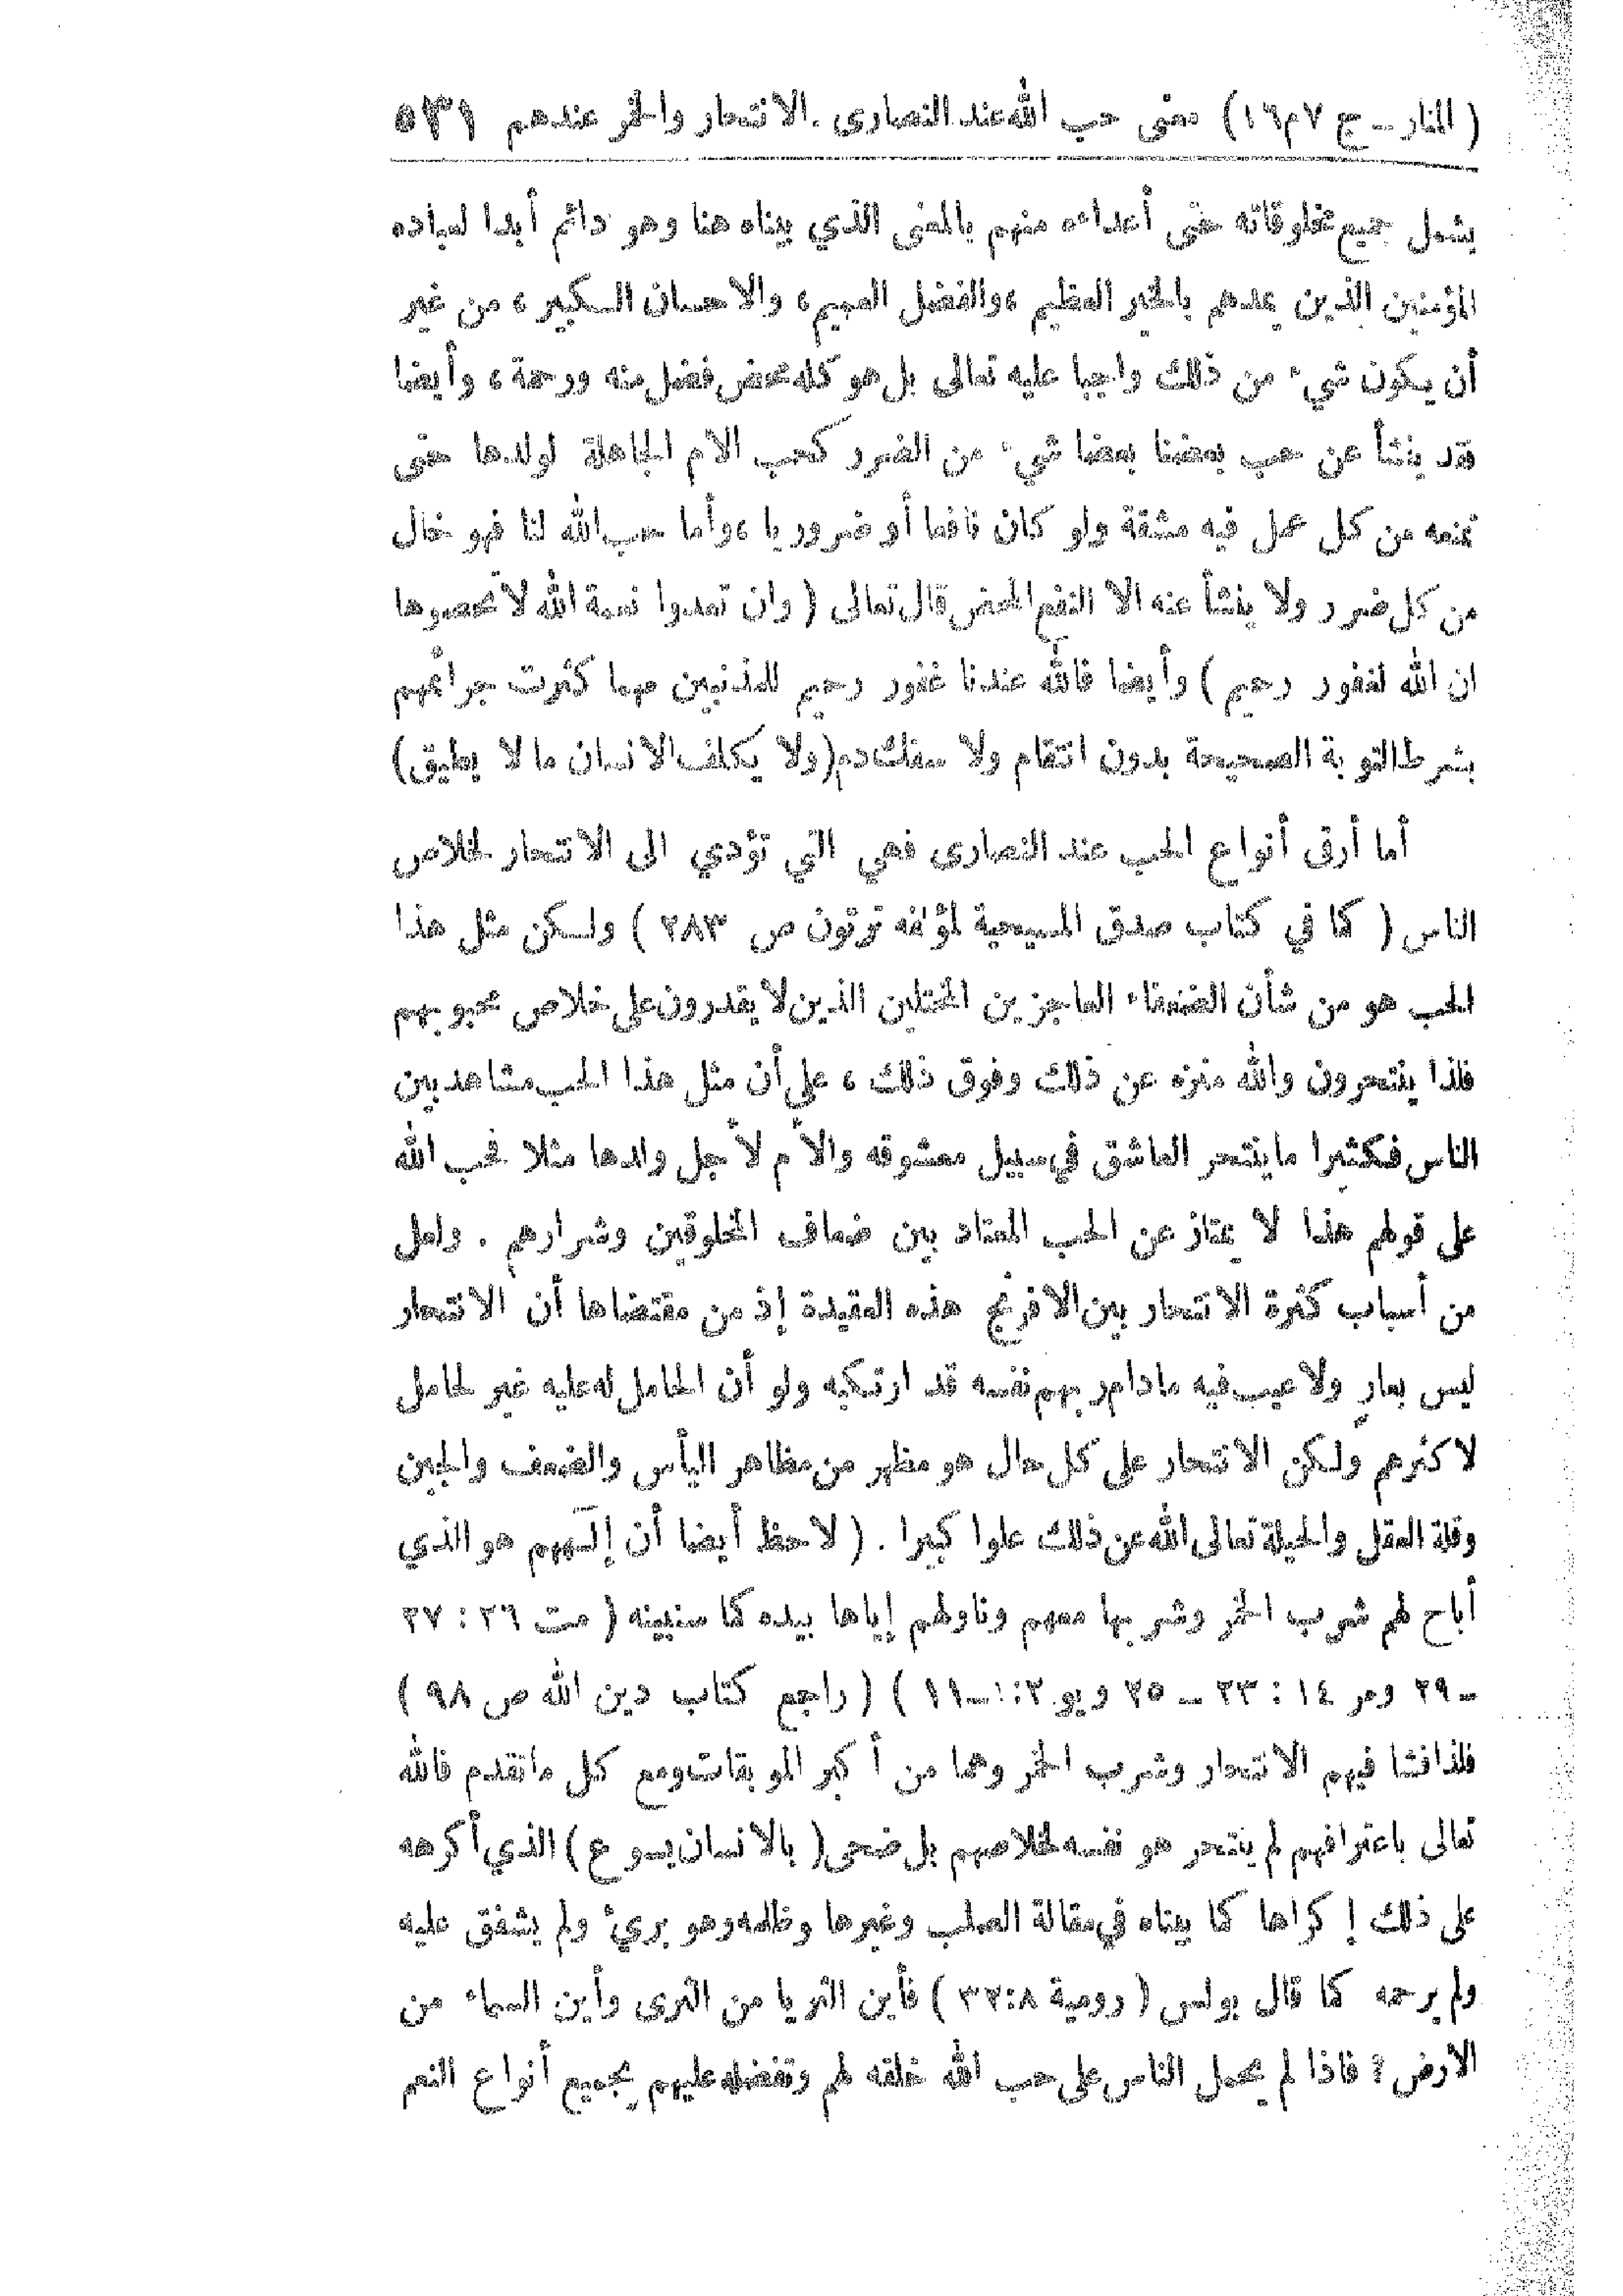 ( المنار - ج ٧ م ١٦ ) معنى حب الله عند النصارى . الانتحار والخمر عندهم ٥٣١
يشمل جميع مخلوقاته حتى أعداءه منهم بالمعنى الذي بيناه هنا وهو دائم أبدا لعباده
المؤمنين الذين يمدهم بالخير العظيم ، والفضل العميم ، والاحسان الكبير ، من غير
أن يكون شيء من ذلك واجبا عليه تعالى بل هو كله محض فضل منه ورحمة ، وأيضا
قد ينشأ عن حب بعضنا بعضا شيء من الضرر كحب الام الجاهلة لولدها حتى
تمنعه من كل عمل فيه مشقة ولو كان نافعا أو ضروريا ، وأما حب الله لنا فهو خال
من كل ضرر ولا ينشأ عنه الا النفع المحض قال تعالى ( وان تعدوا نعمة الله لا تحصوها
ان الله لغفور رحيم ) وأيضا فالله عندنا غفور رحيم للمذنبين مهما كثرت جرائمهم
بشرط التوبة الصحيحة بدون انتقام ولا سفك دم (ولا يكلف الانسان ما لا يطيق)
أما أرقى أنواع الحب عند النصارى فهي التي تؤدي الى الانتحار لخلاص
الناس ( كما في كتاب صدق المسيحية لمؤلفه ترتون ص ٢٨٣ ) ولكن مثل هذا
الحب هو من شأن الضعفاء العاجزين المختلين الذين لا يقدرون على خلاص محبوبهم
فلذا ينتحرون والله منزه عن ذلك وفوق ذلك ، على أن مثل هذا الحب مشاهد بين
الناس فكثيرا ما ينتحر العاشق في سبيل معشوقه والأم لأجل ولدها مثلا فحب الله
على قولهم هذا لا يمتاز عن الحب المعتاد بين ضعاف المخلوقين وشرارهم . ولعل
من أسباب كثرة الانتحار بين الافرنج هذه العقيدة إذ من مقتضاها أن الانتحار
ليس بعار ولا عيب فيه ما دام ربهم نفسه قد ارتكبه ولو أن الحامل له عليه غير الحامل
لاكثرهم ولكن الانتحار على كل حال هو مظهر من مظاهر اليأس والضعف والجبن
وقلة العقل والحيلة تعالى الله عن ذلك علوا كبيرا . ( لاحظ أيضا أن إلههم هو الذي
أباح لهم شرب الخمر وشربها معهم وناولهم إياها بيده كما سنبينه ( مت ٢٦ : ٢٧
- ٢٩ ومر ١٤ : ٢٣ - ٢٥ ويو ٢ : ١ - ١١ ) ( راجع كتاب دين الله ص ٩٨ )
فلذا فشا فيهم الانتحار وشرب الخمر وهما من أكبر الموبقات ومع كل ما تقدم فالله
تعالى باعترافهم لم ينتحر هو نفسه لخلاصهم بل ضحى ( بالانسان يسوع ) الذي أكرهه
على ذلك إكراها كما بيناه في مقالة الصلب وغيرها وظلمه وهو بريء ولم يشفق عليه
ولم يرحمه كما قال بولس ( رومية ٨:٣٢ ) فأين الثريا من الثرى وأين السماء من
الارض ؟ فاذا لم يحمل الناس على حب الله خلقه لهم وتفضله عليهم بجميع أنواع النعم